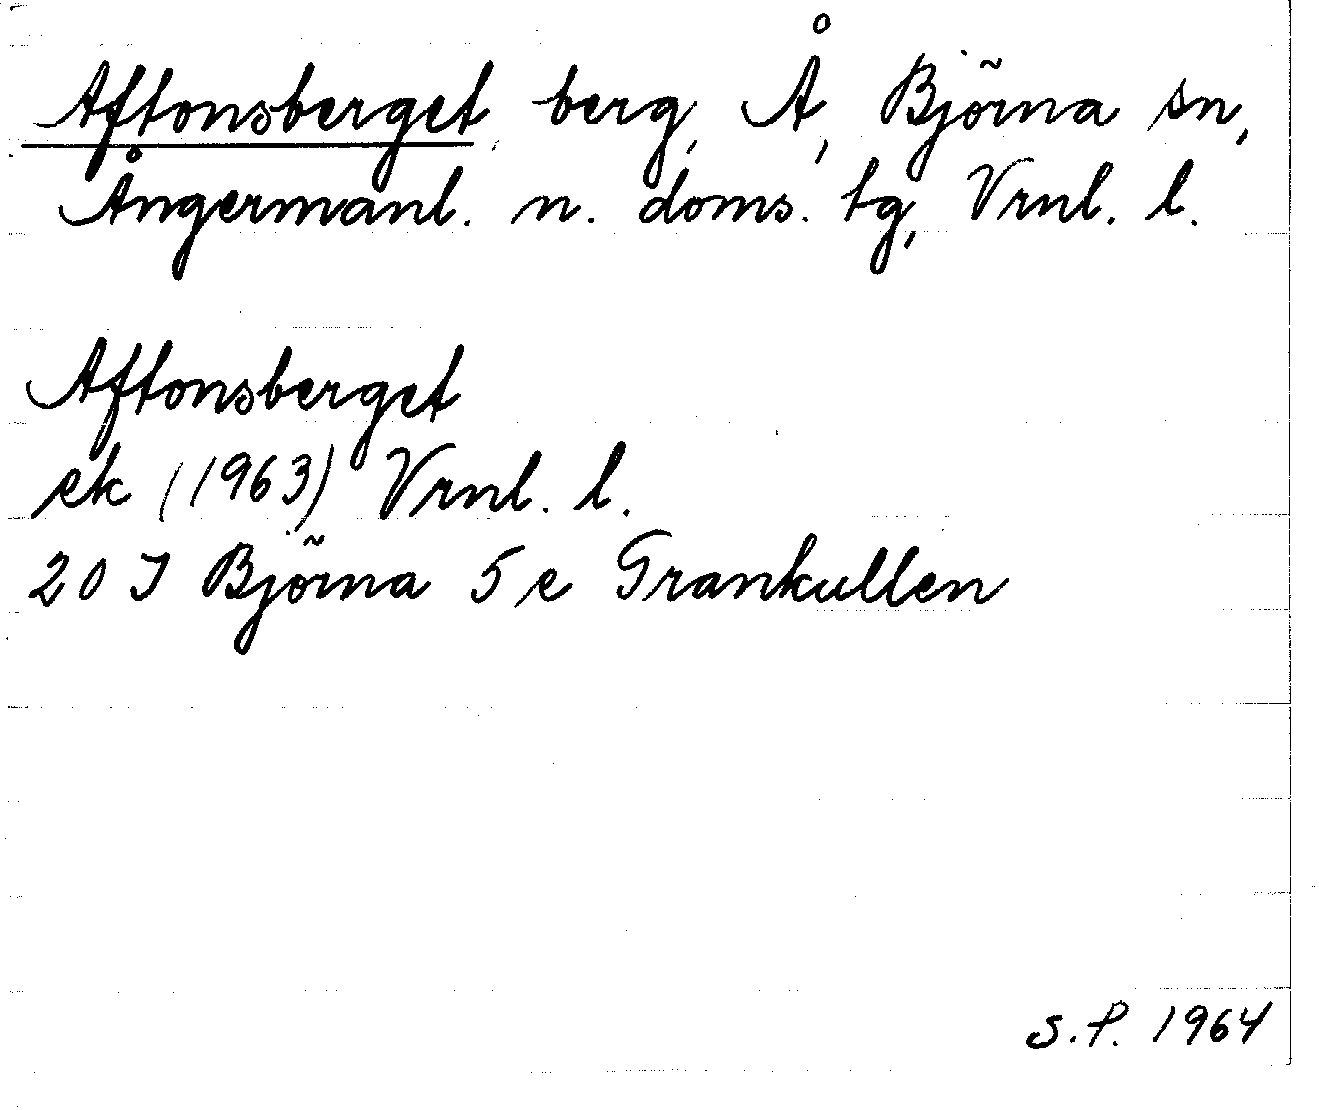 Aftonsberget, berg, Å, Björna sn,
Ångermanl. n. doms. tg, Vrnl. l.
Aftonsberget
ek (1963) Vrnl. l.
20 J Björna 5 e Grankullen
S.P. 1964